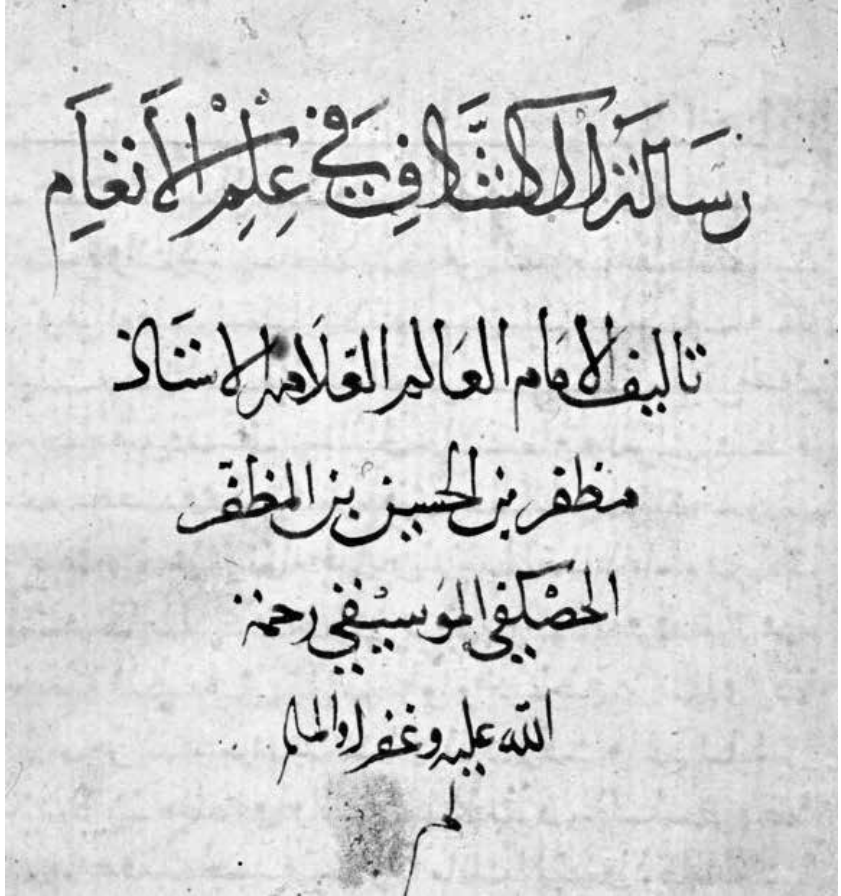 رَسَالة الكشَّافِ فَي عِلِمْ الأَنغَاَمِ
تاليف الامَام العَالم العّلاَمه الاستَاذ
مظفر بن الحسين بن المظفّر
الحصْكفي الموَسيْقي رحمة
الله عليه وغفر